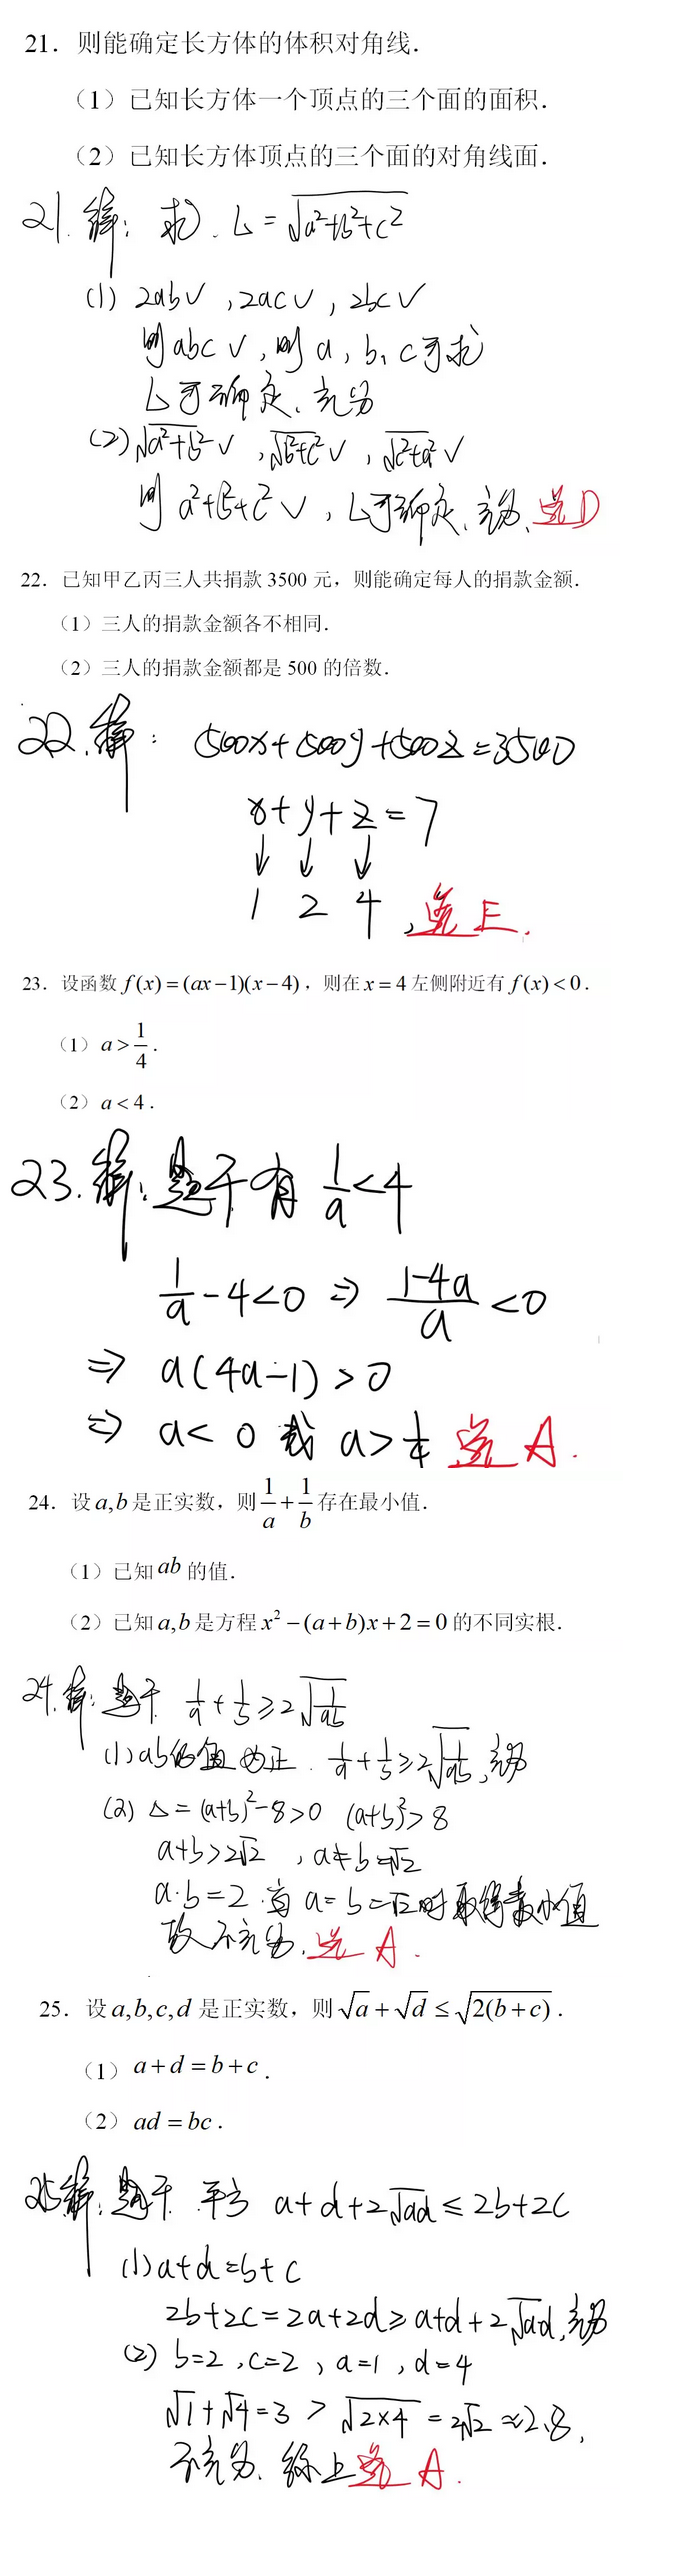 21．则能确定长方体的体积对角线．
（1）已知长方体一个顶点的三个面的面积．
（2）已知长方体顶点的三个面的对角线面．
21.解: 求. L = √(a²+b²+c²)
(1) 2ab√ , 2ac√ , 2bc√
则abc√, 则a, b, c可求
L可确定、充分
(2) √(a²+b²)√ , √(b²+c²)√ , √(c²+a²)√
则 a²+b²+c²√, L可确定、充分、选D
22．已知甲乙丙三人共捐款 3500 元，则能确定每人的捐款金额．
（1）三人的捐款金额各不相同．
（2）三人的捐款金额都是 500 的倍数．
22.解: 500x+500y+500z=3500
x+y+z=7
↓ ↓ ↓
1 2 4 , 选E.
23．设函数 f(x)=(ax−1)(x−4)，则在 x=4 左侧附近有 f(x)<0．
（1）a>1/4．
（2）a<4．
23.解: 题干有 1/a<4
1/a-4<0 ⇒ (1-4a)/a<0
⇒ a(4a-1)>0
⇒ a<0 或 a>1/4 选A.
24．设 a,b 是正实数，则 1/a+1/b 存在最小值．
（1）已知 ab 的值．
（2）已知 a,b 是方程 x²−(a+b)x+2=0 的不同实根．
24.解: 题干 1/a+1/b≥2√(1/ab)
(1) ab的值为正. 1/a+1/b≥2√(1/ab), 充分
(2) Δ=(a+b)²-8>0 (a+b)²>8
a+b>2√2 , a≠b≠√2
a·b=2.当a=b=√2时取得最小值
故不充分. 选A.
25．设 a,b,c,d 是正实数，则 √a+√d≤√(2(b+c))．
（1）a+d=b+c．
（2）ad=bc．
25解: 题干 平方 a+d+2√ad≤2b+2c
(1) a+d=b+c
2b+2c=2a+2d≥a+d+2√ad, 充分
(2) b=2, c=2, a=1, d=4
√1+√4=3 > √(2×4)=2√2≈2.8,
不充分、综上选A.